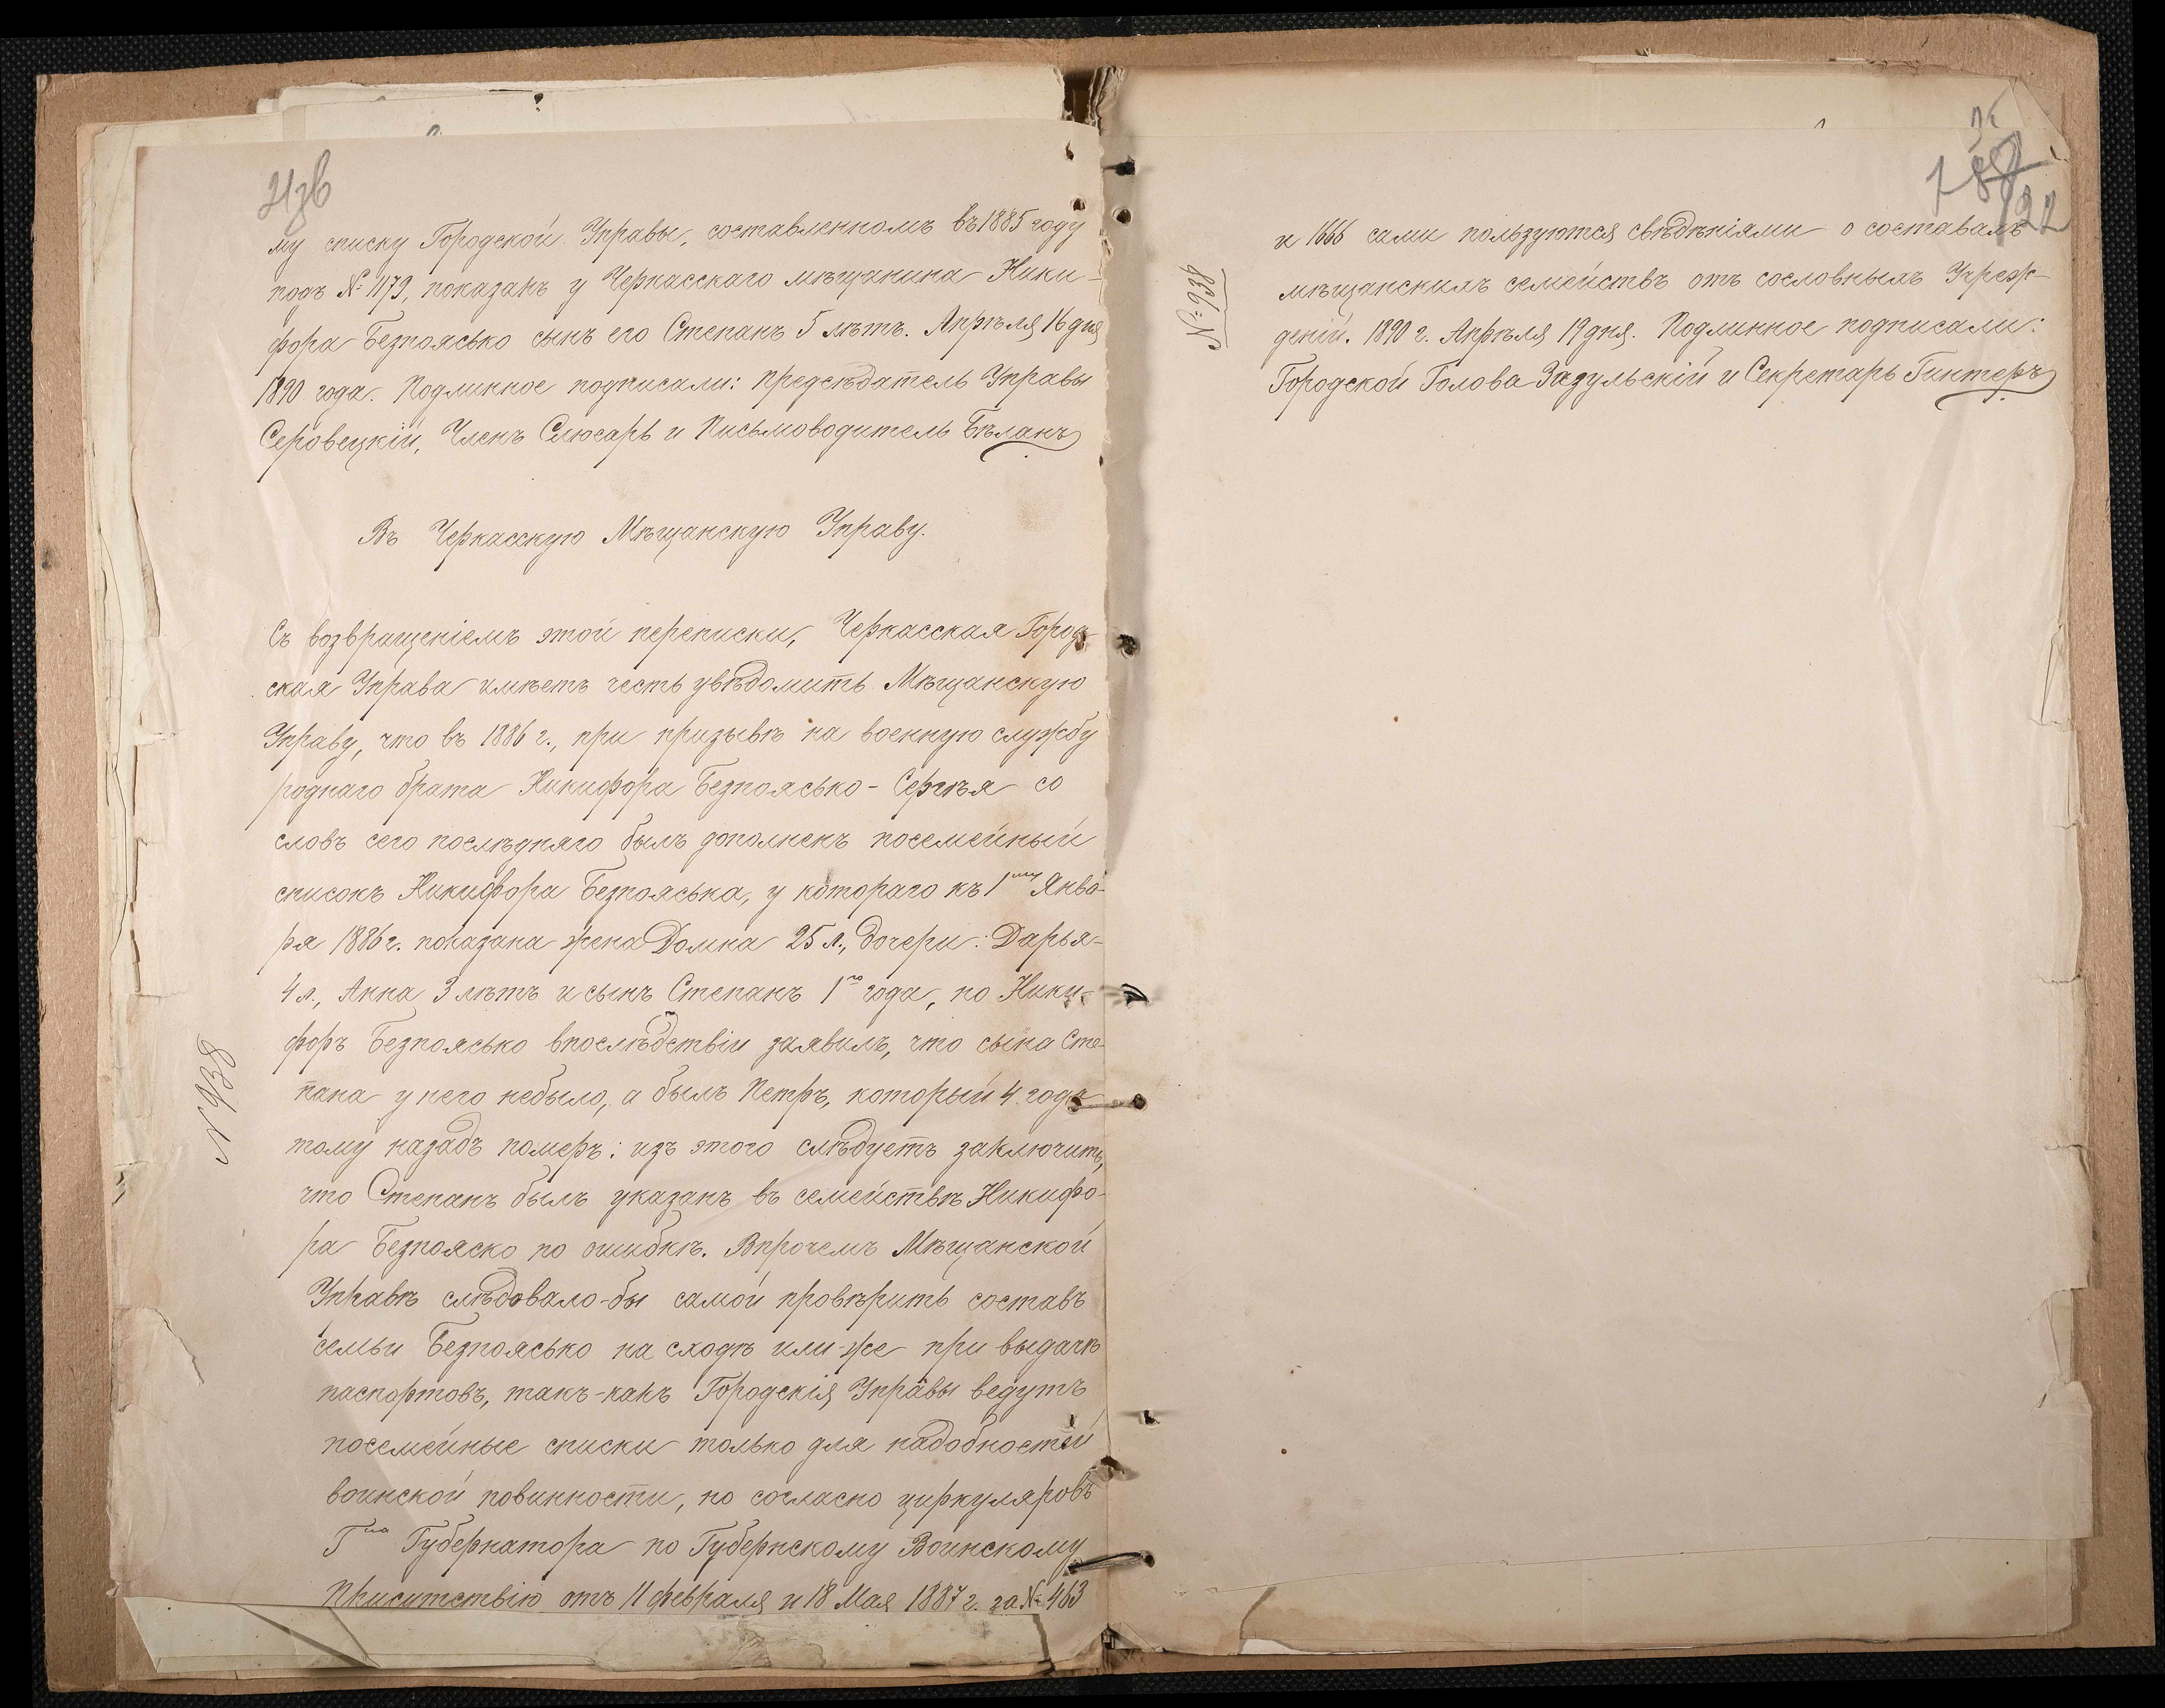 му списку Городской Управы, составленномъ въ 1885 году
подъ № 1179, показанъ у Черкасскаго мѣщанина Ники-
фора Безпоясько сынъ его Степанъ 5 лѣтъ. Апрѣля 16 дня
1890 года. Подлинное подписали: Предсѣдатель Управы
Серовецкій, Членъ Слюсарь и Письмоводитель Бѣланъ
Въ Черкасскую Мѣщанскую Управу.
Съ возвращеніемъ этой переписки, Черкасская Город-
ская Управа имѣетъ честь увѣдомить Мѣщанскую
Управу, что въ 1886 г., при призывѣ на военную службу
роднаго брата Никифора Безпоясько - Сергѣя со
словъ сего послѣдняго былъ дополненъ посемейный
списокъ Никифора Безпояська, у котораго къ 1му Янва-
ря 1886 г. показана жена Домна 25 л., дочери: Дарья -
4 л., Анна 3 лѣтъ и сынъ Степанъ 1го года, но Ники-
форъ Безпоясько впослѣдствіи заявилъ, что сына Сте-
пана у него небыло, а былъ Петръ, который 4 года
тому назадъ померъ; изъ этого слѣдуетъ заключить,
что Степанъ былъ указанъ въ семействѣ Никифо-
ра Безпояско по ошибкѣ. Впрочемъ Мѣщанской
Управѣ слѣдовало-бы самой провѣрить составъ
семьи Безпоясько на сходѣ или-же при выдачѣ
паспортовъ, такъ-какъ Городскія Управы ведутъ
посемейные списки только для надобностей
воинской повинности, но согласно циркуляровъ
Гна Губернатора по Губернскому Воинскому
Присутствію отъ 11 февраля и 18 Мая 1887 г. за № 463
№ 938
и 1666 сами пользуются свѣдѣніями о составахъ
мѣщанскихъ семействъ отъ сословныхъ Учреж-
деній. 1890 г. Апрѣля 19 дня. Подлинное подписали:
Городской Голова Задульскій и Секретарь Гинтеръ